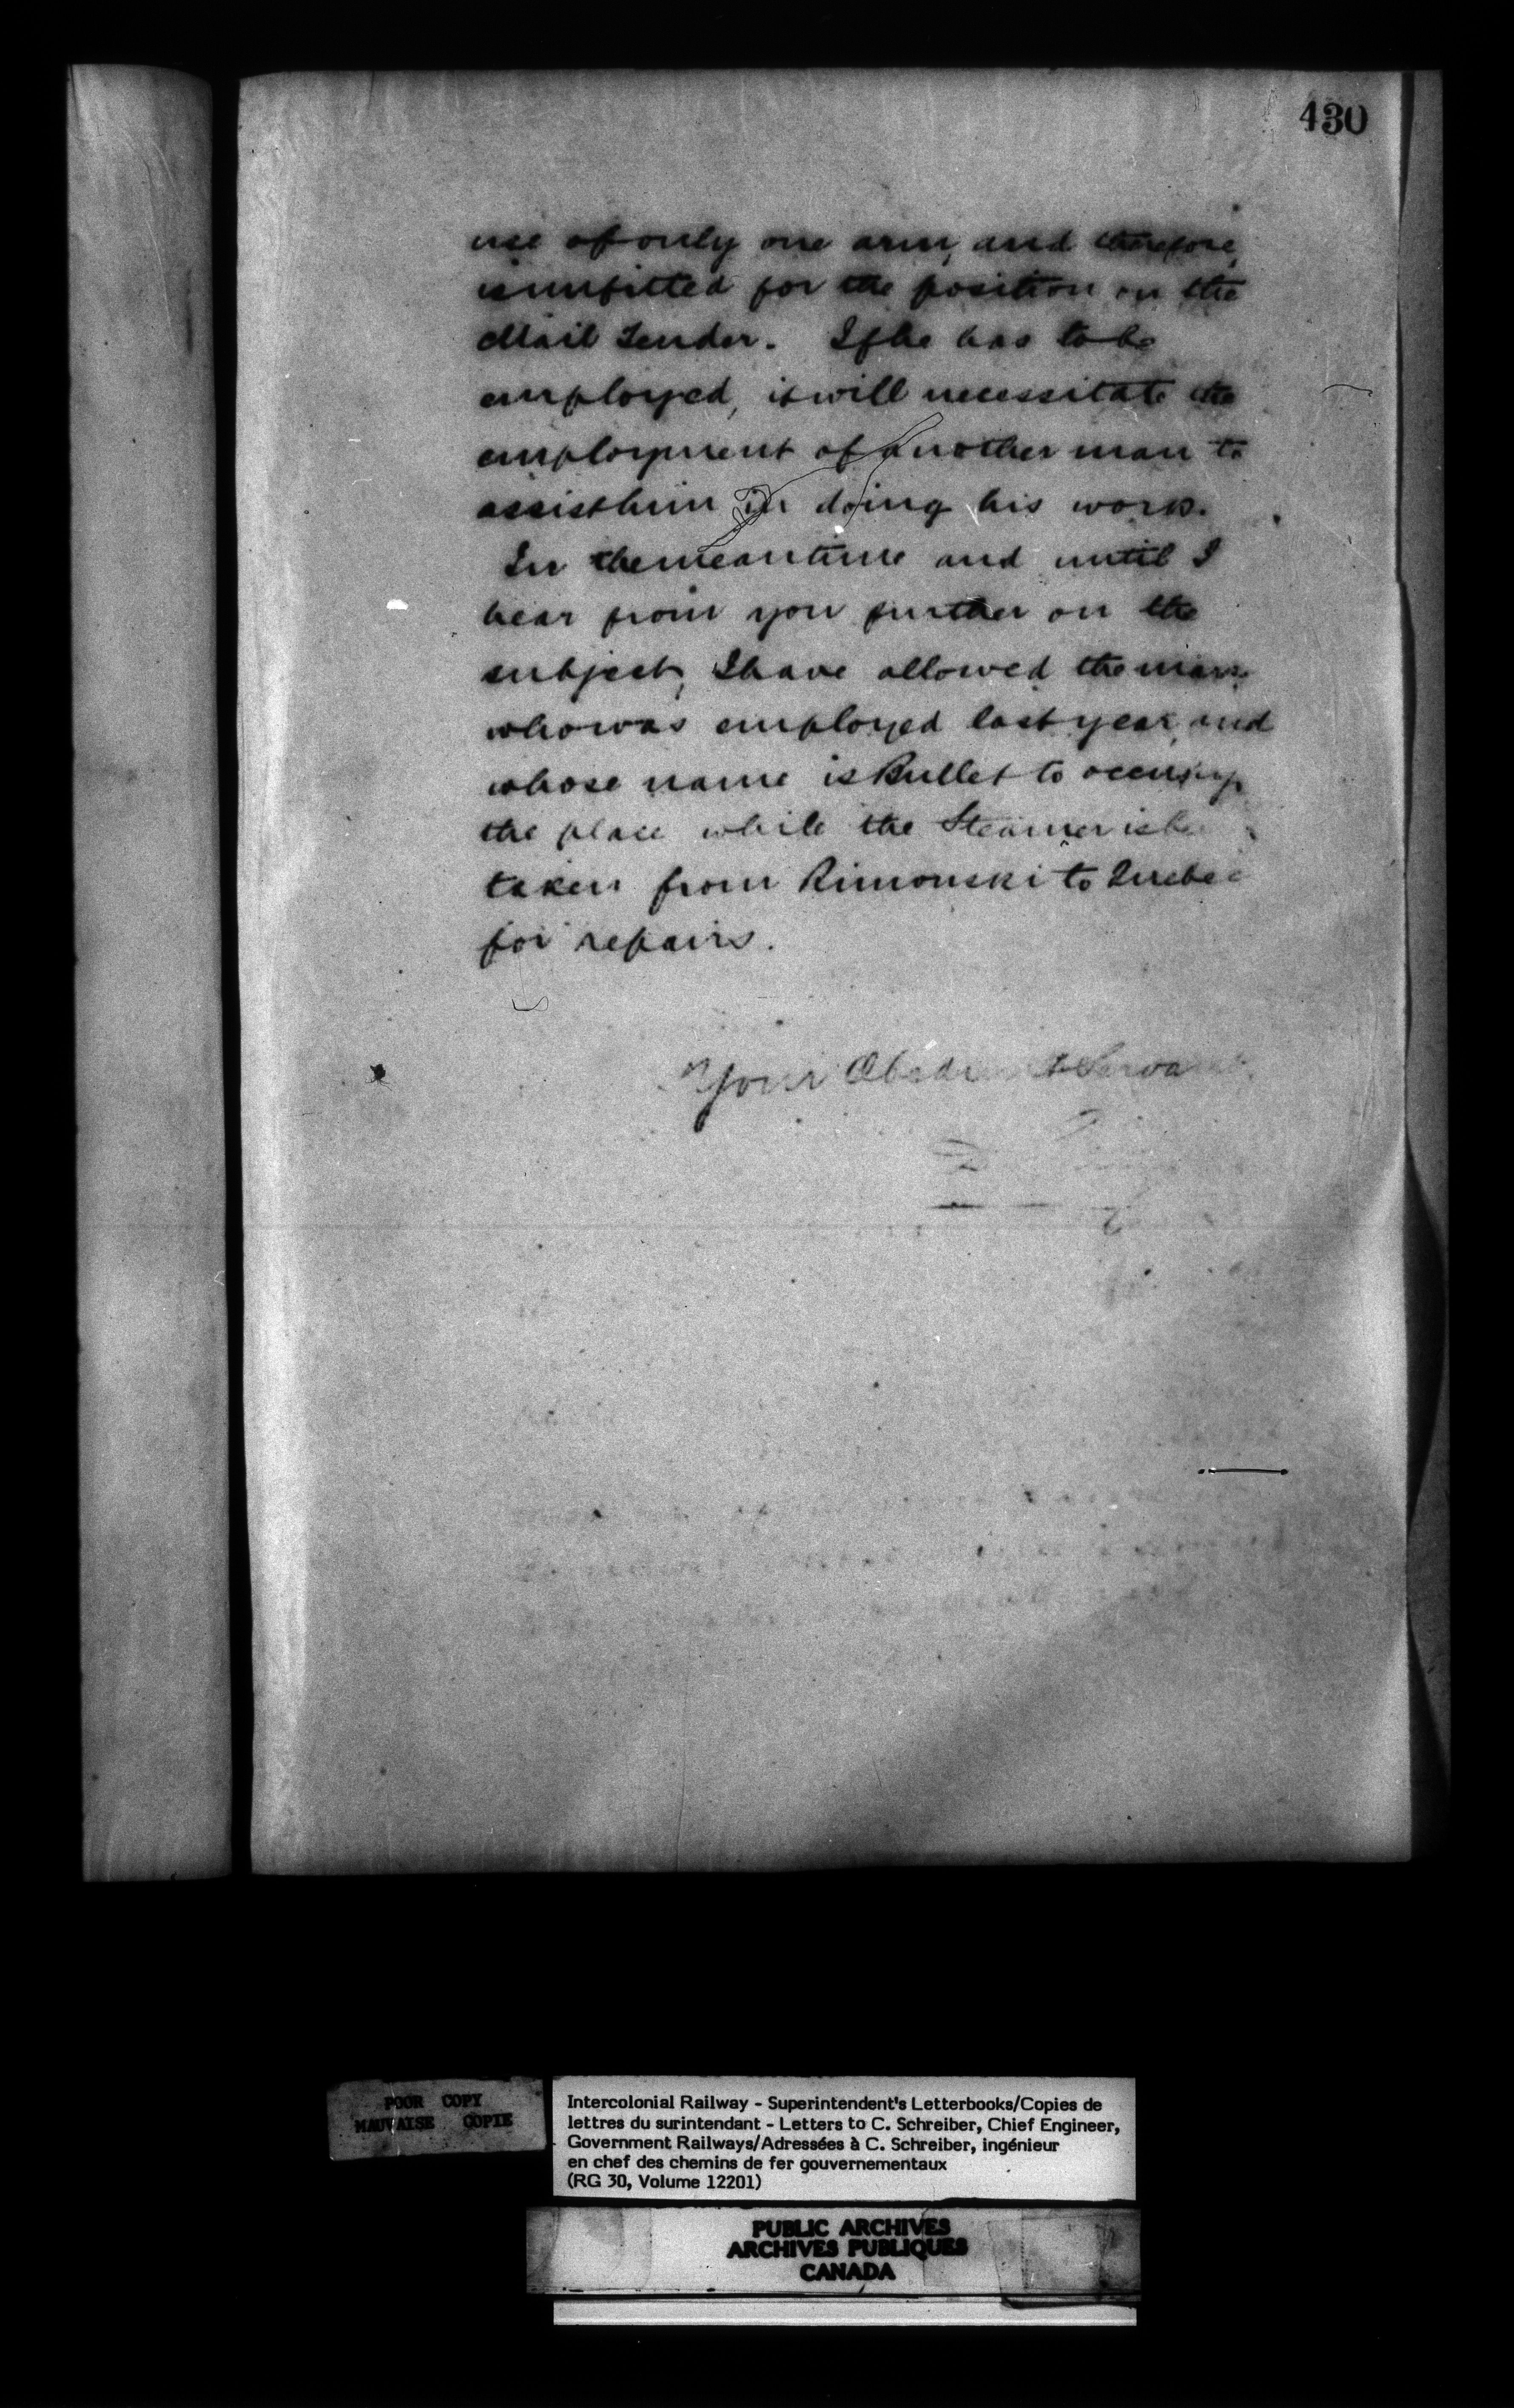 430
use of only one arm, and therefore,
is unfitted for the position on the
Mail Tender. If he has to be
employed, it will necessitate the
employment of another man to
assist him in doing his work.
In the meantime and until I
hear from you further on the
subject, I have allowed the man
who was employed last year, and
whose name is Bullet to occupy
the place while the Steamer is
taken from Rimouski to Quebec
for repairs.
Your Obedient Servant
POOR COPY
MAUVAISE COPIE
Intercolonial Railway - Superintendent's Letterbooks/Copies de
lettres du surintendant - Letters to C. Schreiber, Chief Engineer,
Government Railways/Adressées à C. Schreiber, ingénieur
en chef des chemins de fer gouvernementaux
(RG 30, Volume 12201)
PUBLIC ARCHIVES
ARCHIVES PUBLIQUES
CANADA